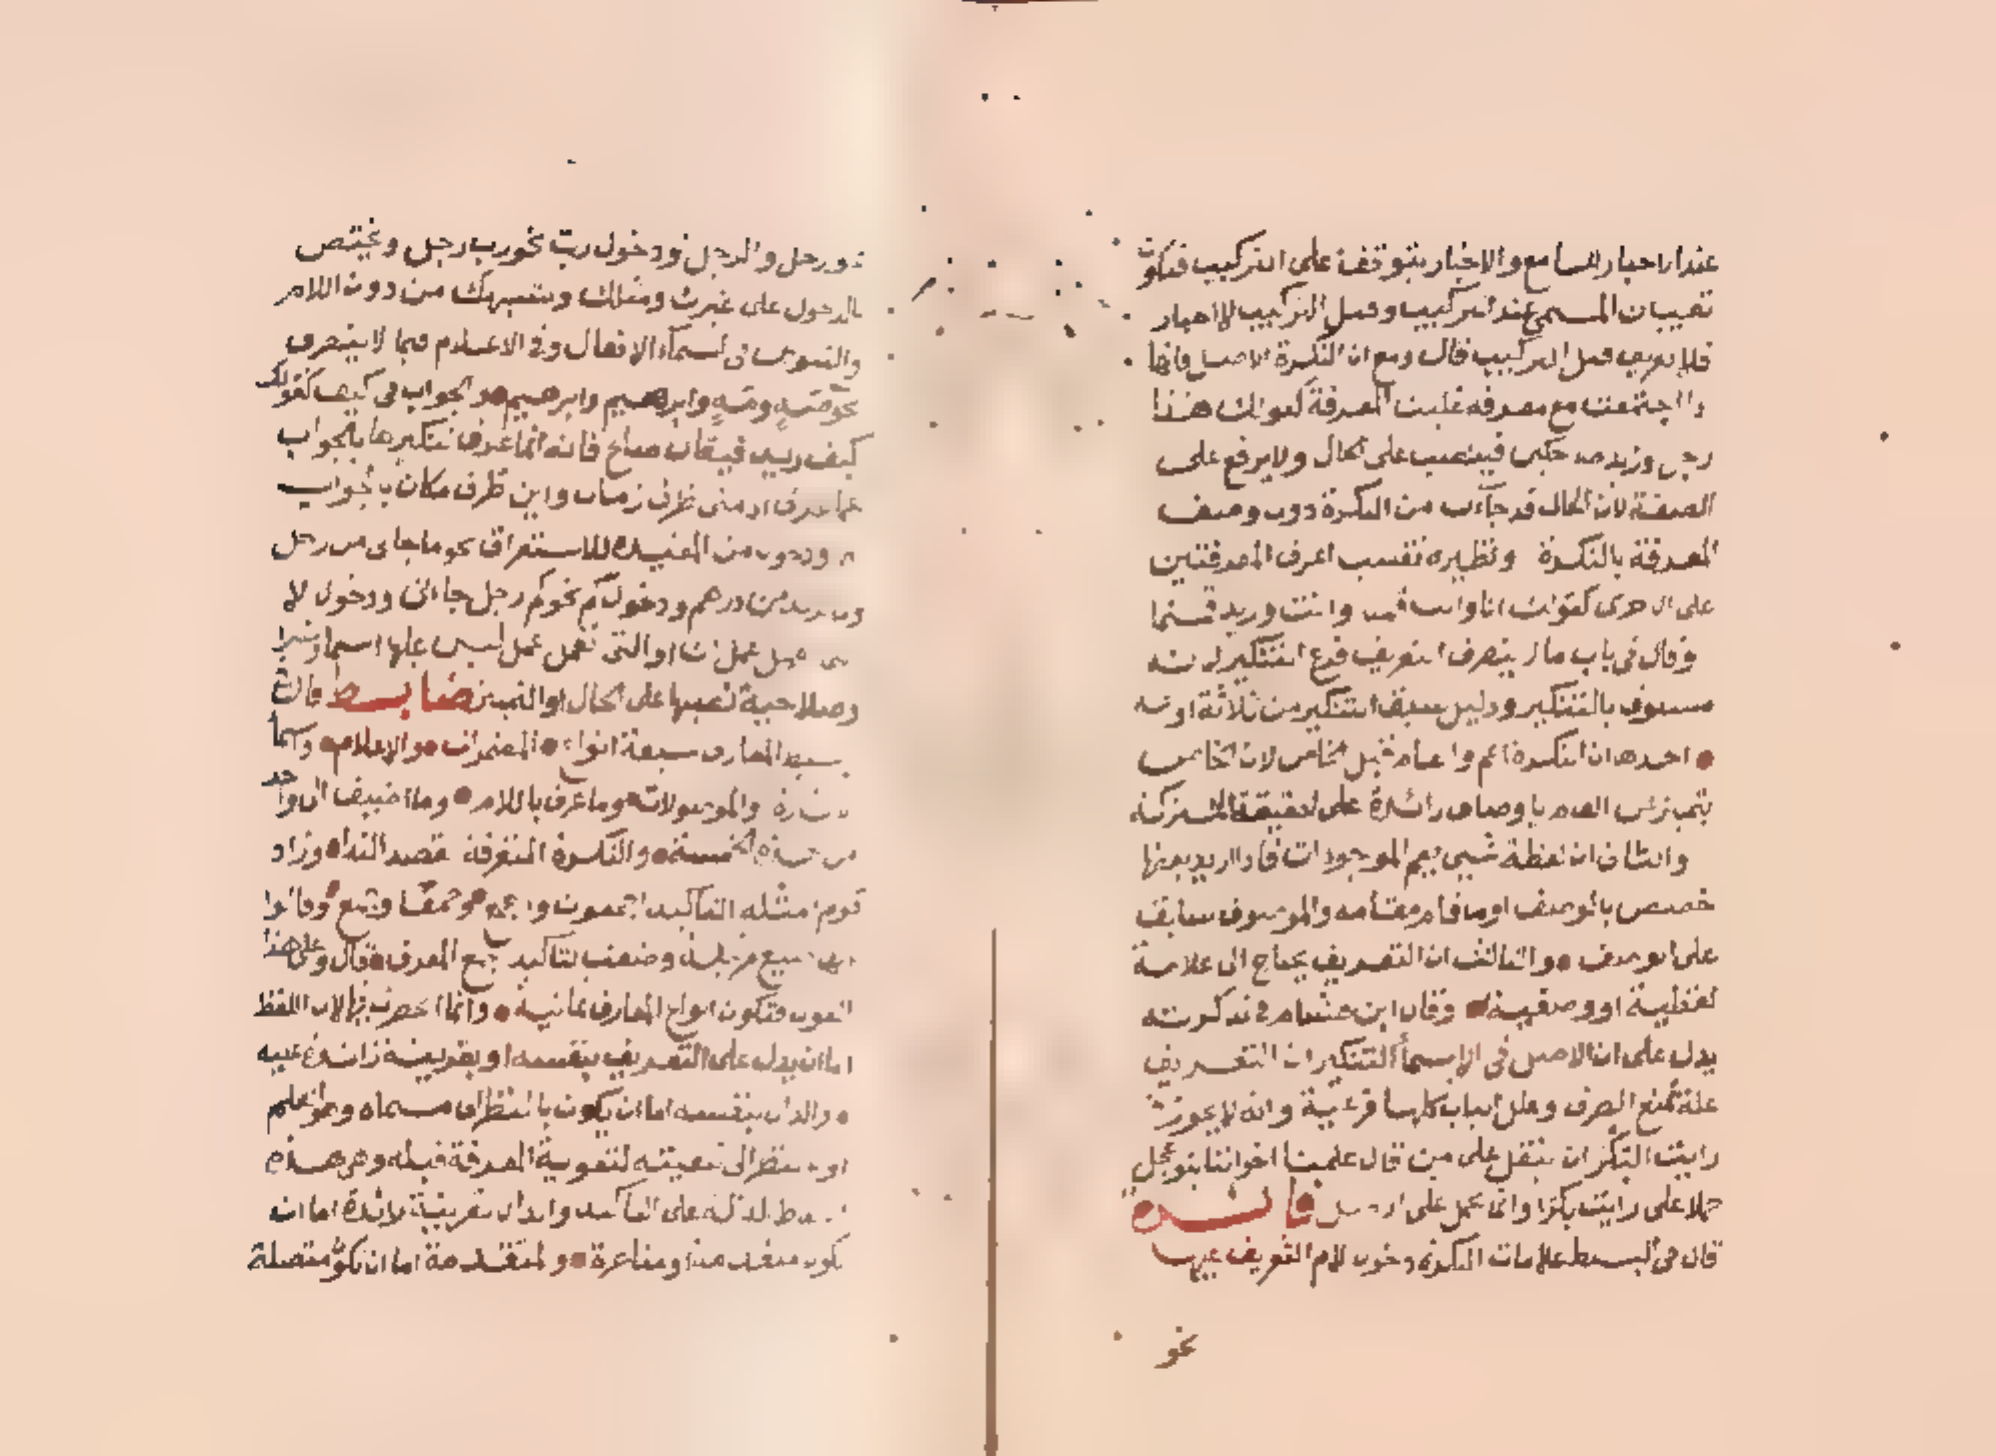 عند الاخبار للسامع والاخبار يتوقف على التركيب فيكون
تعريف المسمى عند التركيب وقبل التركيب لا اخبار
فلا تعريف قبل التركيب قال ومع ان النكرة الاصل فانها
اذا اجتمعت مع معرفة غلبت المعرفة كقولك هذا
رجل وزيد ضاحكين فينصب على الحال ولا يرفع على
الصفة لان الحال قد جاءت من النكرة دون وصف
المعرفة بالنكرة ونظيره تغليب اعرف المعرفتين
على الاخرى كقولك انا وانت قمنا وانت وزيد قمتما
وقال في باب ما لا ينصرف التعريف فرع التنكير لانه
مسبوق بالتنكير ودليل سبق التنكير من ثلاثة اوجه
احدها ان النكرة اعم والعام قبل الخاص لان الخاص
يتميز عن العام باوصاف زائدة على الحقيقة المشتركة
والثاني ان لفظة شيء يعم الموجودات فاذا اريد بعضها
خصص بالوصف او ما قام مقامه والموصوف سابق
على الوصف والثالث ان التعريف يحتاج الى علامة
لفظية او وضعية وقال ابن هشام في تذكرته
يدل على ان الاصل في الاسماء التنكير ان التعريف
علة تمنع الصرف وعلل الباب كلها فرعية وانه لا يجوز
رايت البكر ان ينقل على من قال علمنا اخواننا بنو عجل
حملا على رايت بكرا وانه يحمل على الاصل فائدة
قال في البسيط علامات النكرة دخول لام التعريف عليها
نحو
نحو رجل والرجل ودخول رب نحو رب رجل ويختص
بالدخول على غيرك ومثلك وشبهك من دون اللام
والتنوين في اسماء الافعال وفي الاعلام فيما لا ينصرف
نحو صه وصه وابراهيم وابراهيم والجواب في كيف كقولك
كيف زيد فيقال صالح فانه انما عرف تنكيرها بالجواب
كما عرف ان متى ظرف زمان واين ظرف مكان بالجواب
ودخول من المفيدة للاستغراق نحو ما جاءني من رجل
وما لزيد من درهم ودخول كم نحو كم رجل جاءني ودخول لا
التي تعمل عمل ان او التي تعمل عمل ليس عليها اسما وخبرا
وصلاحية نصبها على الحال او التمييز ضابط قال في
البسيط المعارف سبعة انواع المضمرات والاعلام واسماء
الاشارة والموصولات وما عرف باللام وما اضيف الى واحد
من هذه الخمسة والنكرة المتعرفة بقصد النداء وزاد
قوم امثلة التاكيد اجمعون واجمع وجمعاء وجمع وقالوا
وضعت لتاكيد جميع المعارف قال وعلى هذا
القول فتكون انواع المعارف ثمانية وانما انحصرت فيها لان اللفظ
اما ان يدل على التعريف بنفسه او بقرينة زائدة عليه
والدال بنفسه اما ان يكون بالنظر الى مسماه وهو العلم
او بالنظر الى تبعيته لتقوية المعرفة قبله وهي هذه
الالفاظ الدالة على التاكيد والدال بقرينة زائدة اما ان
تكون متقدمة او متاخرة والمتقدمة اما ان تكون متصلة